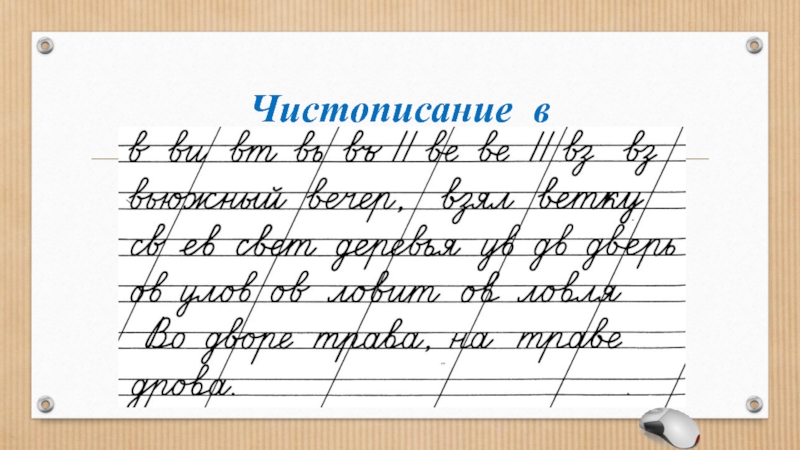 Чистописание в
в ви вт вь въ // ве ве // вз вз
вьюжный вечер, взял ветку
св ев свет деревья ув дв дверь
ов улов ов ловит ов ловля
Во дворе трава, на траве
дрова.